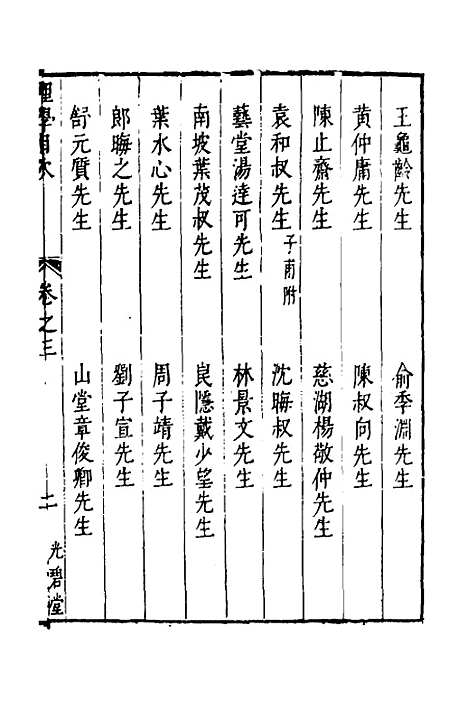 王龜齡先生　俞季淵先生
黄仲庸先生　陳叔向先生
陳止齋先生　慈湖楊敬仲先生
袁和叔先生子甫附　沈晦叔先生
藝堂湯達可先生　林景文先生
南坡葉茂叔先生　艮隱戴少望先生
葉水心先生　周子靖先生
郎晦之先生　劉子宣先生
舒元質先生　山堂章俊卿先生
理學　卷之三　二　光碧堂